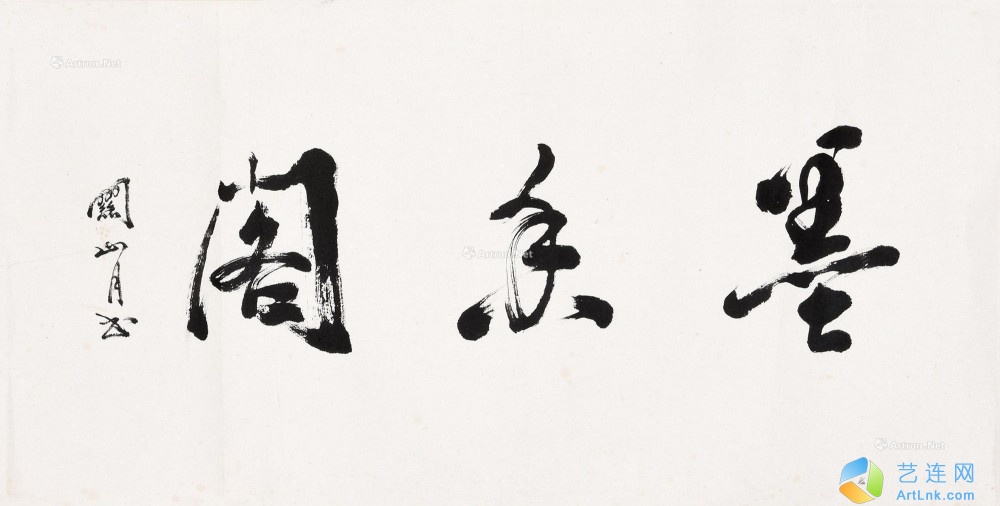 墨香閣
關山月书
Artron.Net
Artron.Net
Artron.Net
艺连网
ArtLnk.com